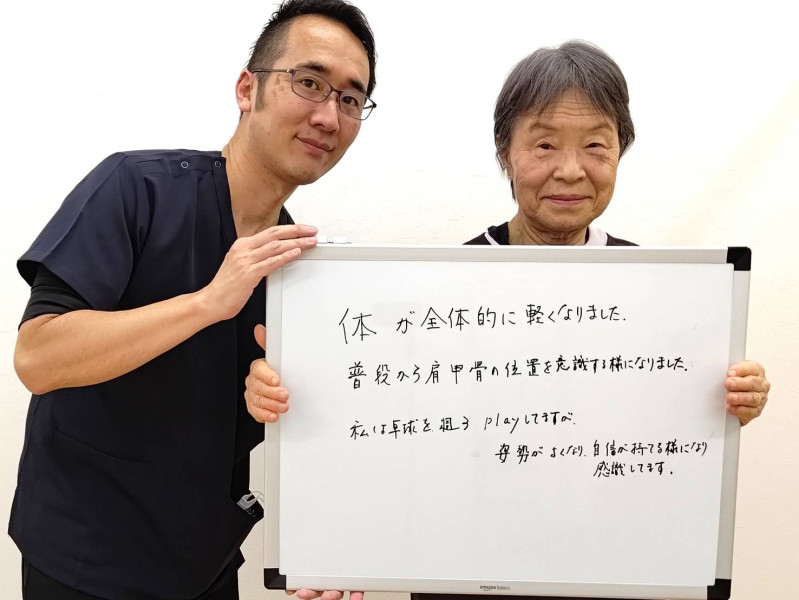 体が全体的に軽くなりました.
普段から肩甲骨の位置を意識する様になりました.
私は卓球を週3 playしてますが.
姿勢がよくなり、自信が持てる様になり
感識してます.
amazon basics